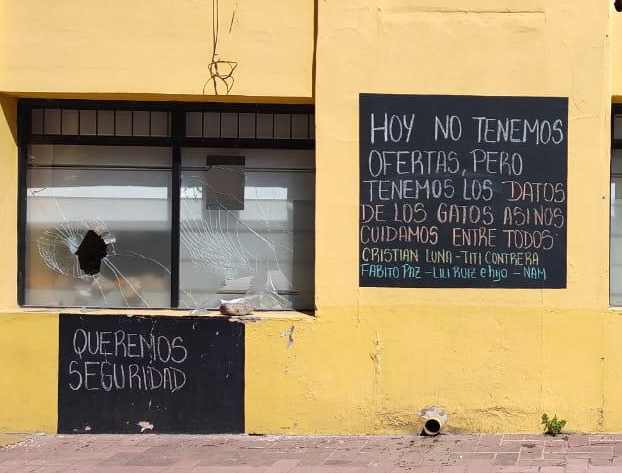 HOY NO TENEMOS
OFERTAS, PERO
TENEMOS LOS DATOS
DE LOS GATOS ASI NOS
CUIDAMOS ENTRE TODOS
CRISTIAN LUNA - TITI CONTRERA
FABITO PAZ - LILI RUIZ e hijo - NAM
QUEREMOS
SEGURIDAD